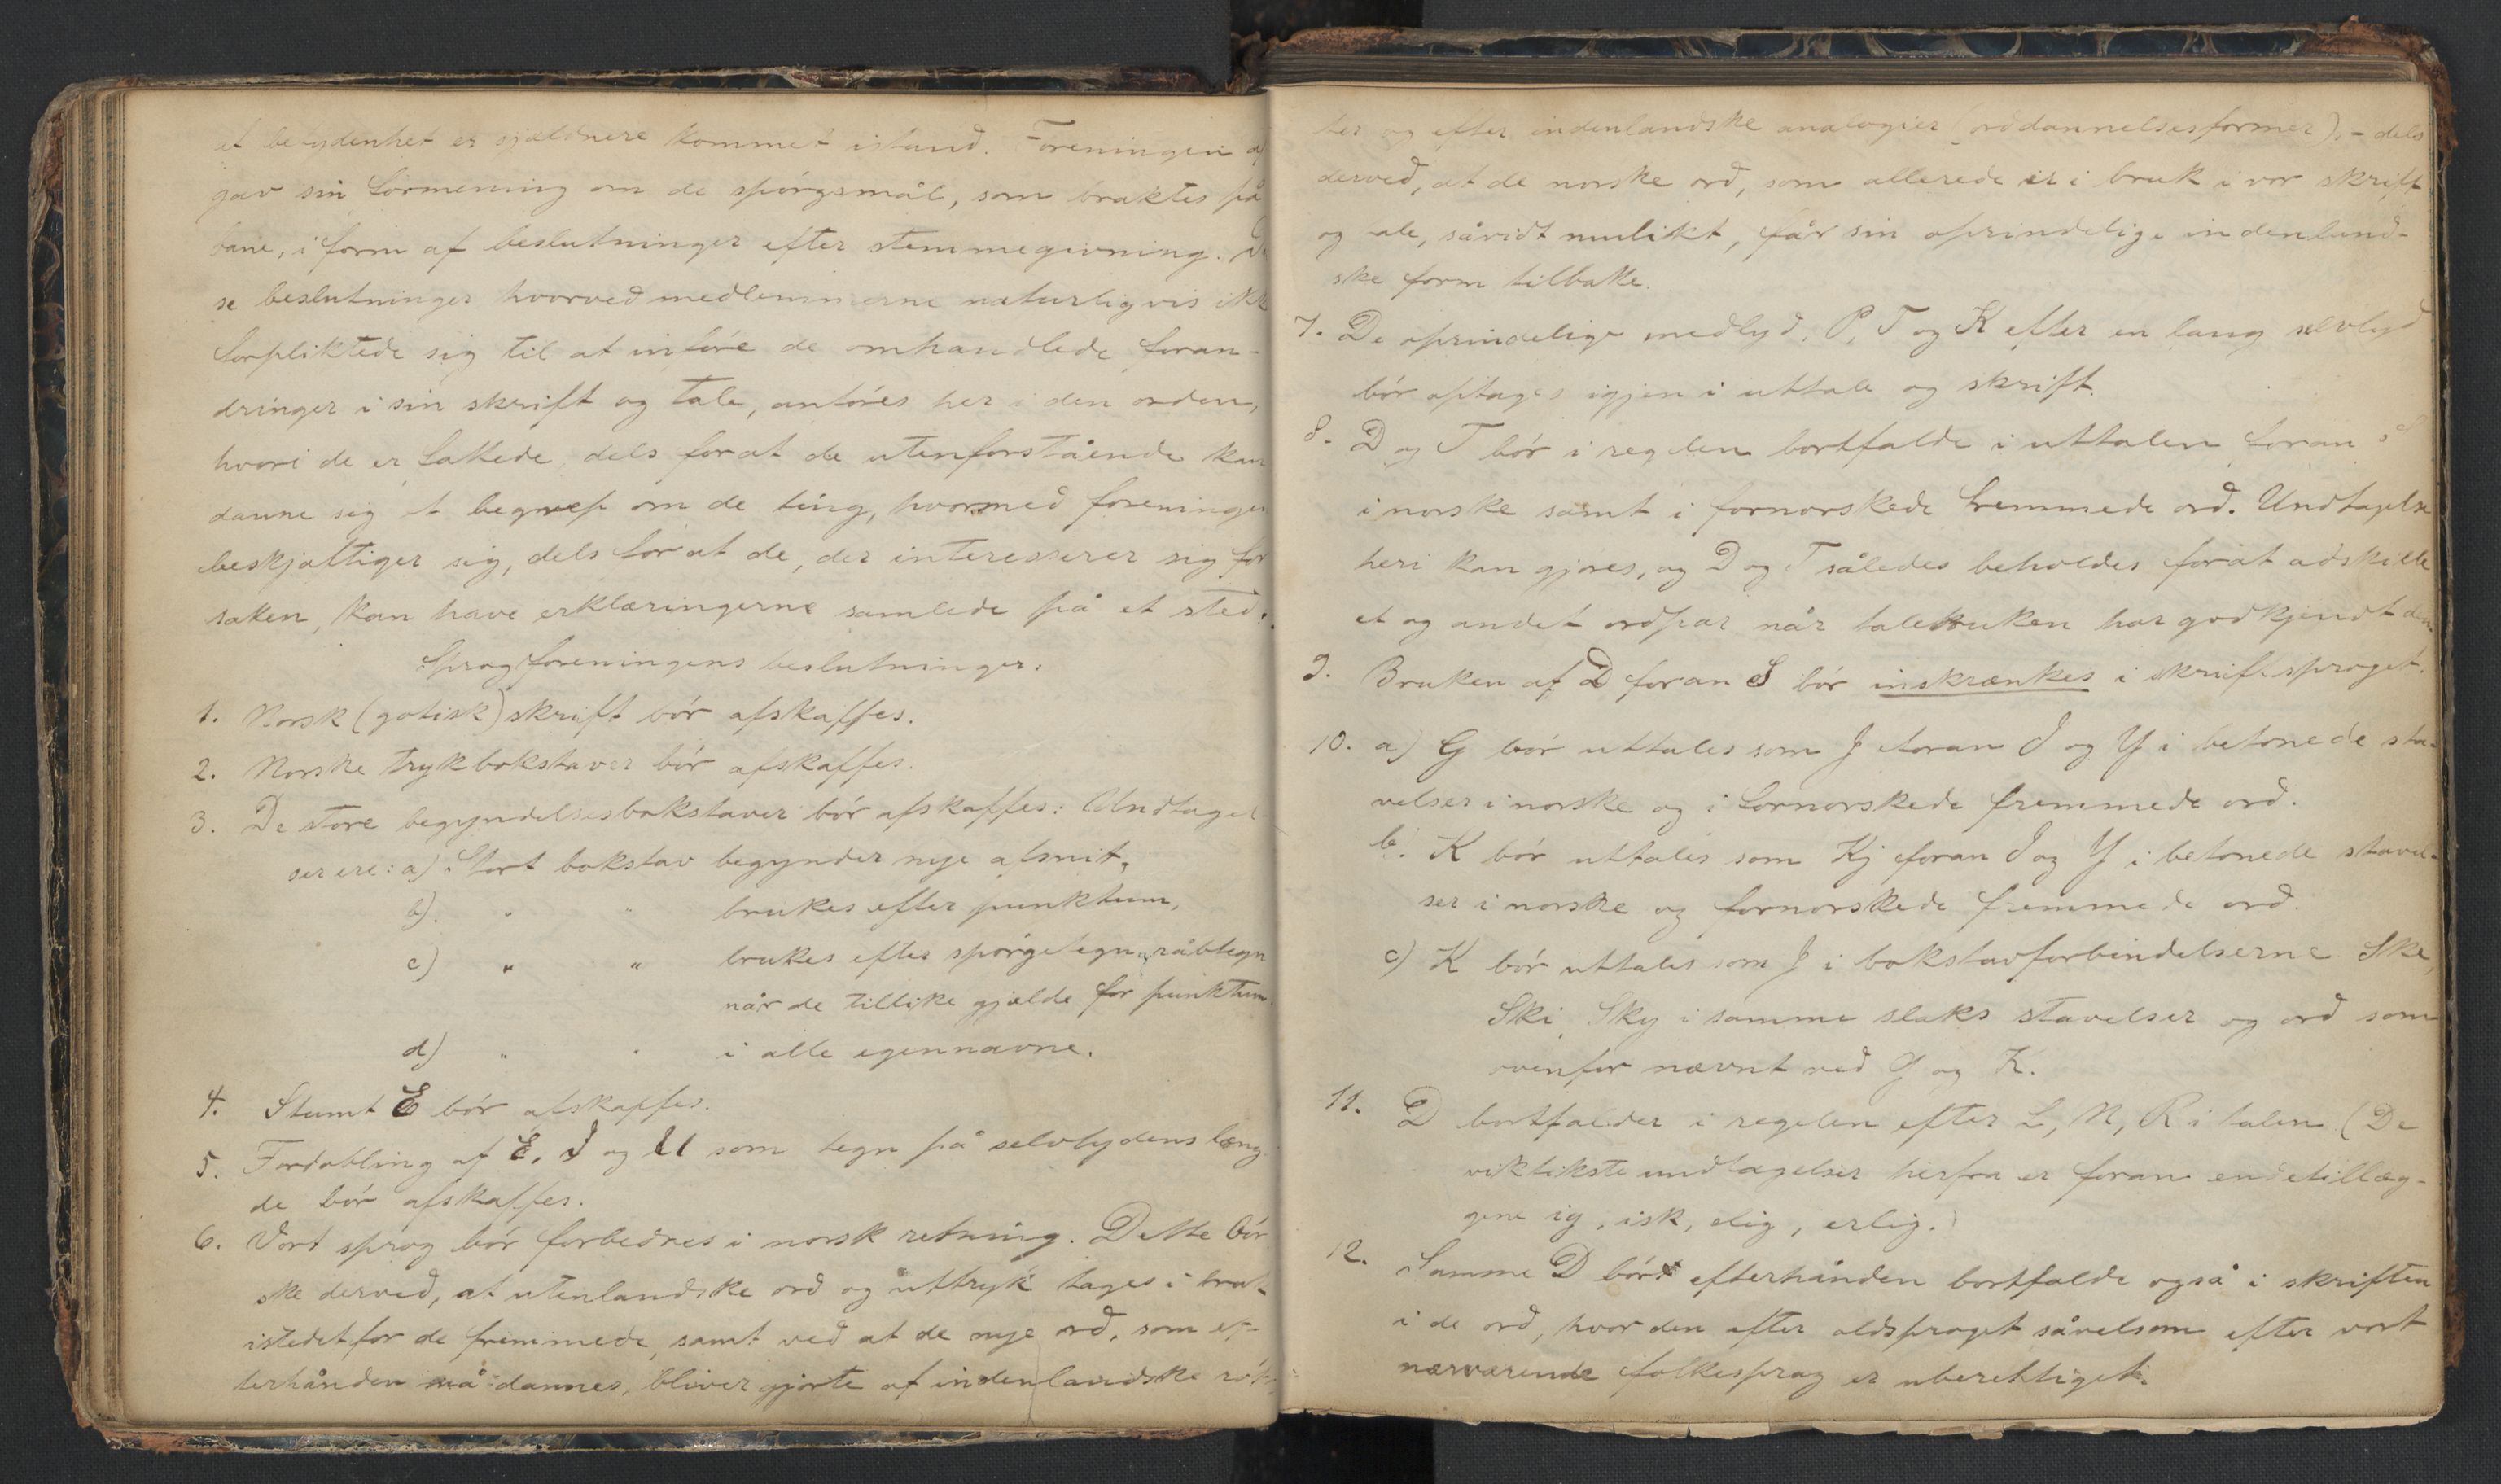 at betydenhet er sjældnere kommet istand. Foreningen af
gav sin formening om de spörgsmål, som braktes på
bane, i form af beslutninger efter stemmegivning. Di
se beslutninger hvorved medlemmerne naturligvis ikke
forpliktede sig til at införe de omhandlede foran-
dringer i sin skrift og tale, anföres her i den orden,
hvori de er fattede, dels for at de utenforstående kan
danne sig et begrep om de ting, hvormed foreningen
beskjæftiger sig, dels for at de, der interesserer sig for
saken, kan have erklæringerne samlede på et sted:
Sprogforeningens beslutninger.
1. Norsk (gotisk) skrift bör afskaffes.
2. Norske trykbokstaver bör afskaffes.
3. De store begyndelsesbokstaver bör afskaffes: Undtagel-
ser ere: a) Stort bokstav begynder nye afsnit,
b). " " brukes efter punktum,
c) " " brukes efter spörgetegn, råbtegn
når de tillike gjælde for punktum.
d) " " i alle egennavne.
4. Stumt E bör afskaffes.
5. Fordobling af E, I og U som tegn på selvlydens læng-
de bör afskaffes.
6. Vort sprog bör forbedres i norsk retning. Dette bör
ske derved, at utenlandske ord og uttryk tages i bruk
istedetfor de fremmede, samt ved at de nye ord, som ef-
terhånden må dannes, bliver gjorte af indenlandske röt-
ter og efter indenlandske analogier (orddannelsesformer), - dels
derved, at de norske ord, som allerede er i bruk i vor skrift
og tale, såvidt mulikt, får sin oprindelige indenland-
ske form tilbake.
7. De oprindelige medlyd, P, T og K efter en lang selvlyd
bör optages igjen i uttale og skrift.
8. D og T bör i regelen bortfalde i uttalen foran s
i norske samt i fornorskede fremmede ord. Undtagelse
heri kan gjöres, og D og T således beholdes for at adskille
et og andet ordpar når talebruken har godkjendt den.
9. Bruken af D foran S bör inskrænkes i skriftsproget.
10. a) G bör uttales som J foran I og Y i betonede sta-
velser i norske og i fornorskede fremmede ord.
b. K bör uttales som Kj foran I og Y i betonede stavel-
ser i norske og fornorskede fremmede ord.
c) K bör uttales som J i bokstavforbindelserne Ske,
Ski, Sky i samme slaks stavelser og ord som
ovenfor nævnt ved G og K.
11. D bortfalder i regelen efter L, N, R i talen (De
viktikste undtagelser herfra er foran endetillæg-
gene ig, isk, elig, erlig.)
12. Samme D bör efterhånden bortfalde også i skriften
i de ord, hvor den efter oldsproget såvelsom efter vort
nærværende folkesprog er uberettiget.